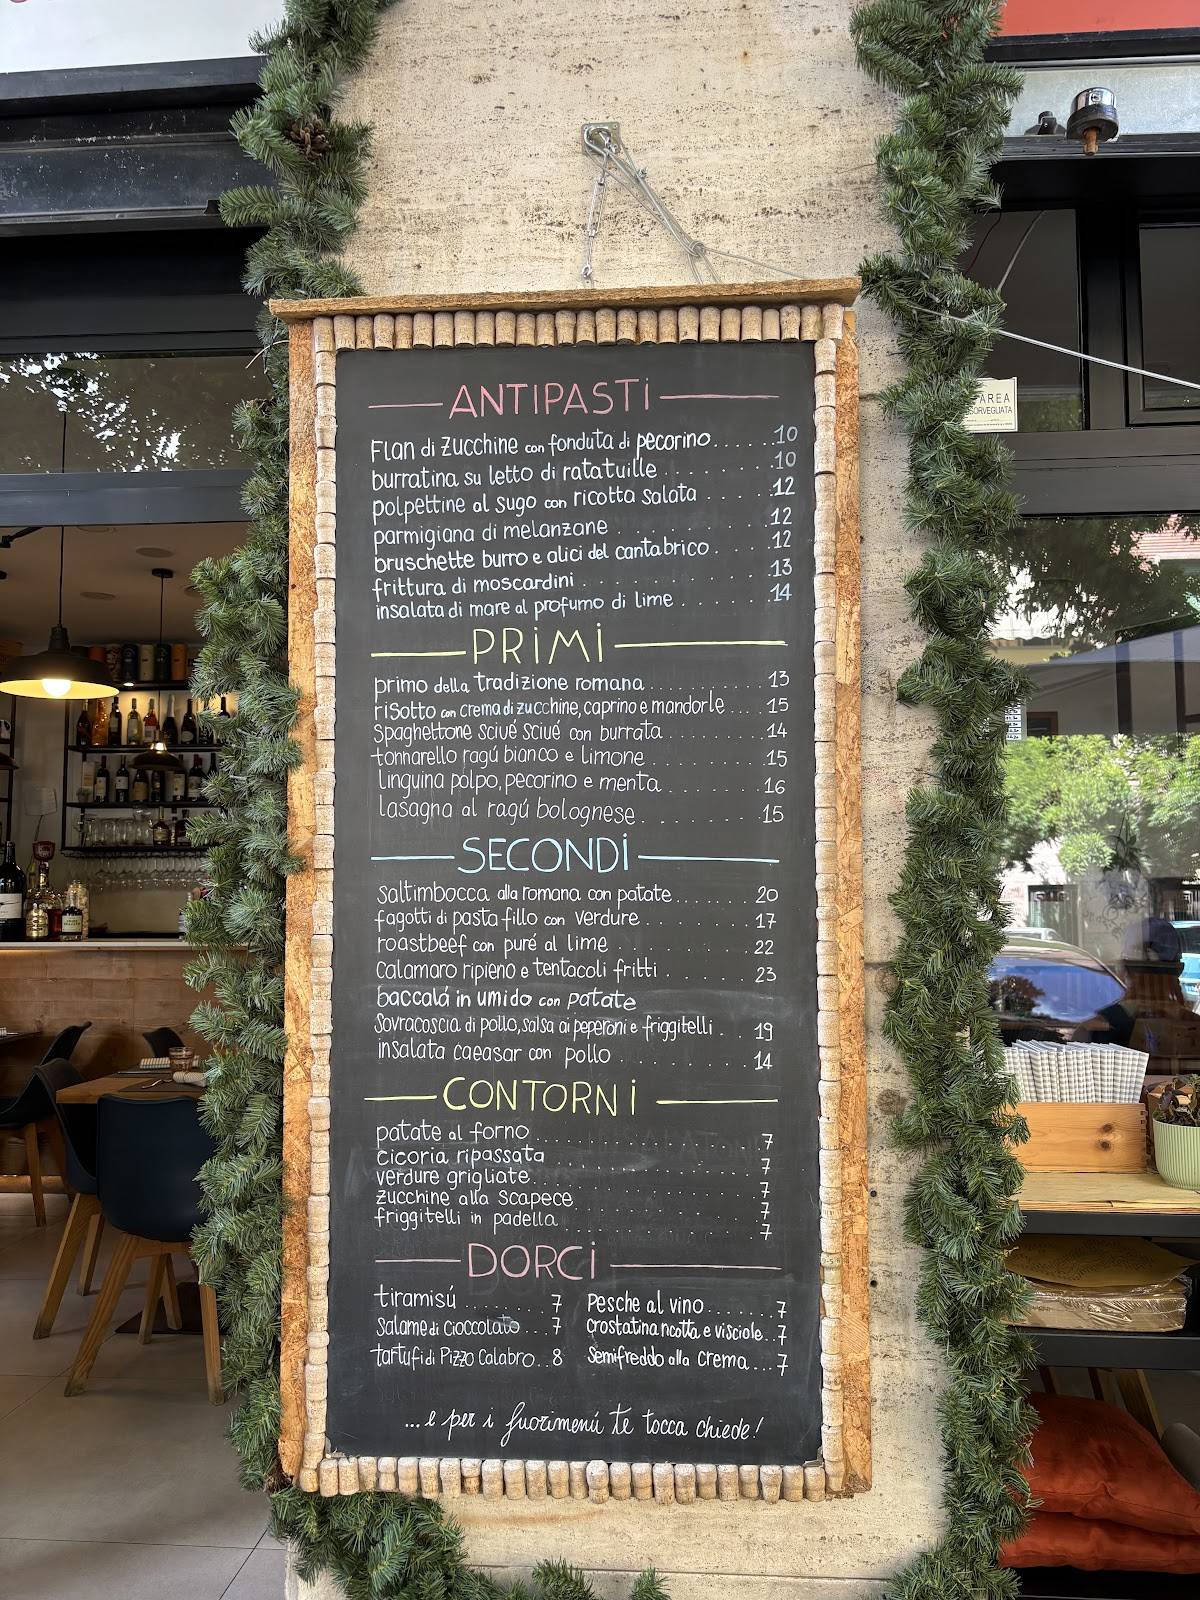 ANTIPASTi
Flan di zucchine con fonduta di pecorino......10
burratina su letto di ratatuille .......10
polpettine al sugo con ricotta salata .....12
parmigiana di melanzane ........12
bruschette burro e alici del cantabrico. ...12
frittura di moscardini .........13
insalata di mare al profumo di lime ......14
PRiMi
primo della tradizione romana..........13
risotto con crema di zucchine, caprino e mandorle ....15
Spaghettone sciué sciué con burrata .........14
tonnarello ragú bianco e limone .........15
linguina polpo, pecorino e menta ........16
lasagna al ragú bolognese .........15
SECONDi
saltimbocca alla romana con patate...... 20
fagotti di pasta fillo con verdure ....... 17
roastbeef con puré al lime ....... 22
calamaro ripieno e tentacoli fritti ...... 23
baccalá in umido con patate
Sovracoscia di pollo, salsa ai peperoni e friggitelli . . 19
insalata caeasar con pollo ........ 14
CONTORNi
patate al forno .............. 7
cicoria ripassata ............ 7
verdure grigliate ............ 7
zucchine alla scapece .......... 7
friggitelli in padella .......... 7
DORCi
tiramisú ........ 7 Pesche al vino .......7
Salame di cioccolato ...7 crostatina ricotta e visciole..7
tartufi di Pizzo Calabro..8 Semifreddo alla crema...7
...e per i fuorimenú te tocca chiede!
AREA
SORVEGLIATA